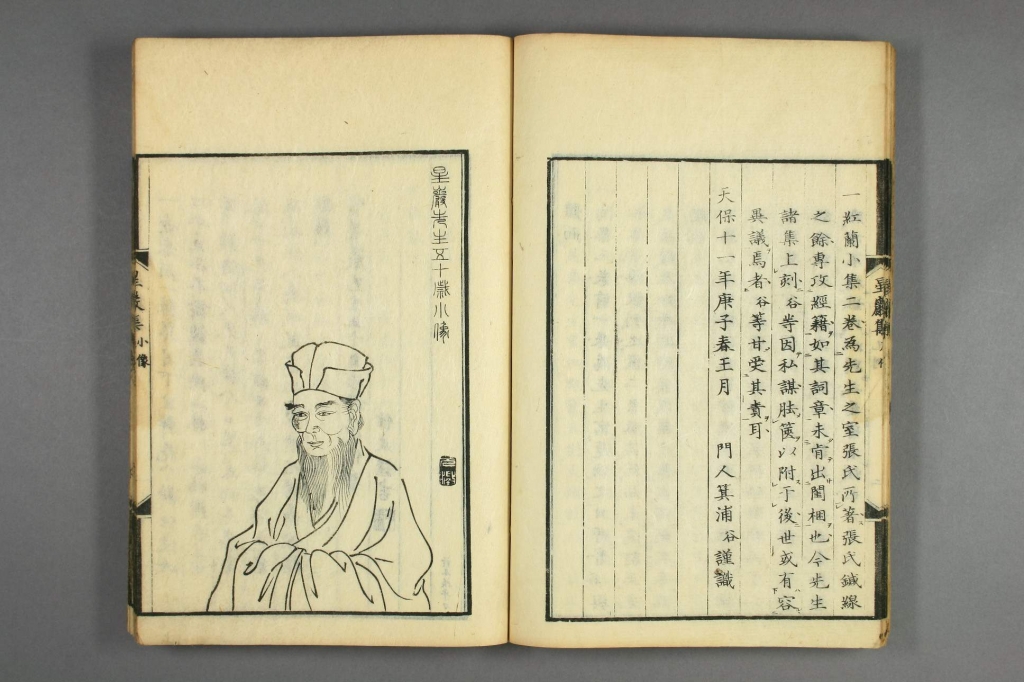 一紅蘭小集二卷為先生之室張氏所著張氏鍼線
之餘專攻經籍如其詞章未肯出閫梱也今先生
諸集上刻谷等因私謀胠篋以附于後世或有容
異議焉者谷等甘受其責耳
天保十一年庚子春王月 門人箕浦谷謹識
星巖集
星巖先生五十歲小像
星巖集 小像